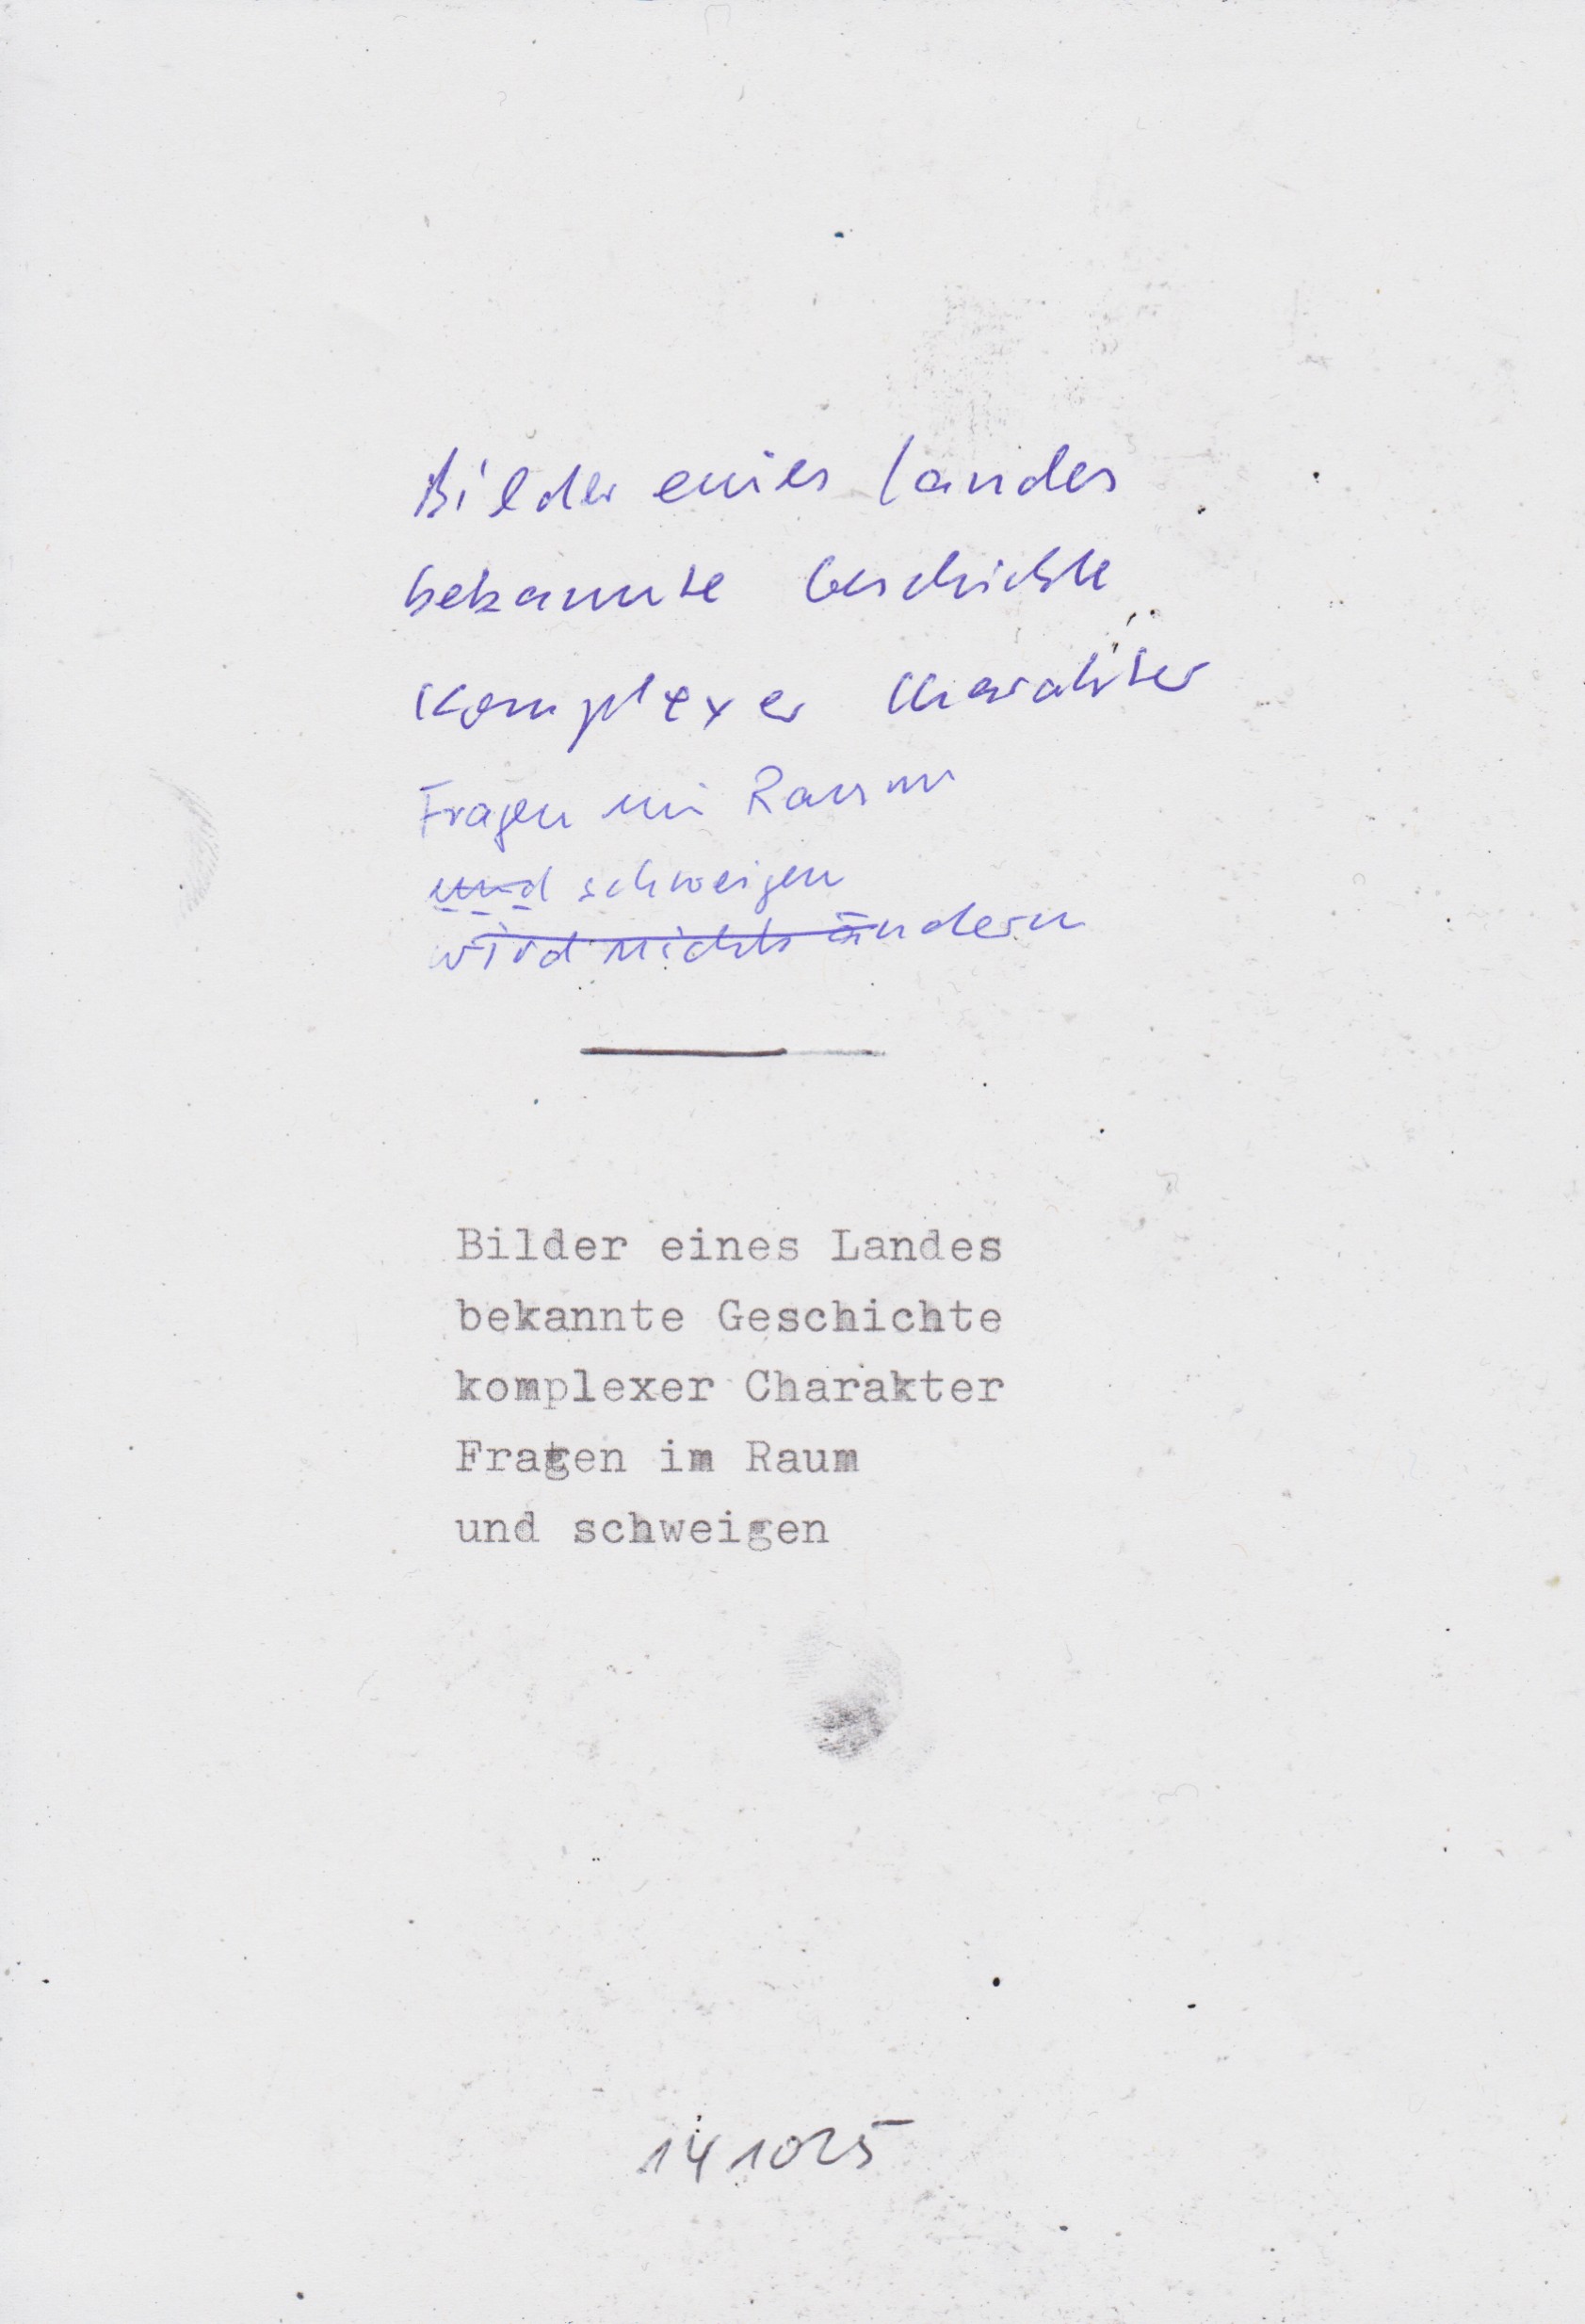 Bilder eines Landes
bekannte Geschichte
komplexer Charakter
Fragen im Raum
und schweigen
wird nichts ändern
Bilder eines Landes
bekannte Geschichte
komplexer Charakter
Fragen im Raum
und schweigen
141025